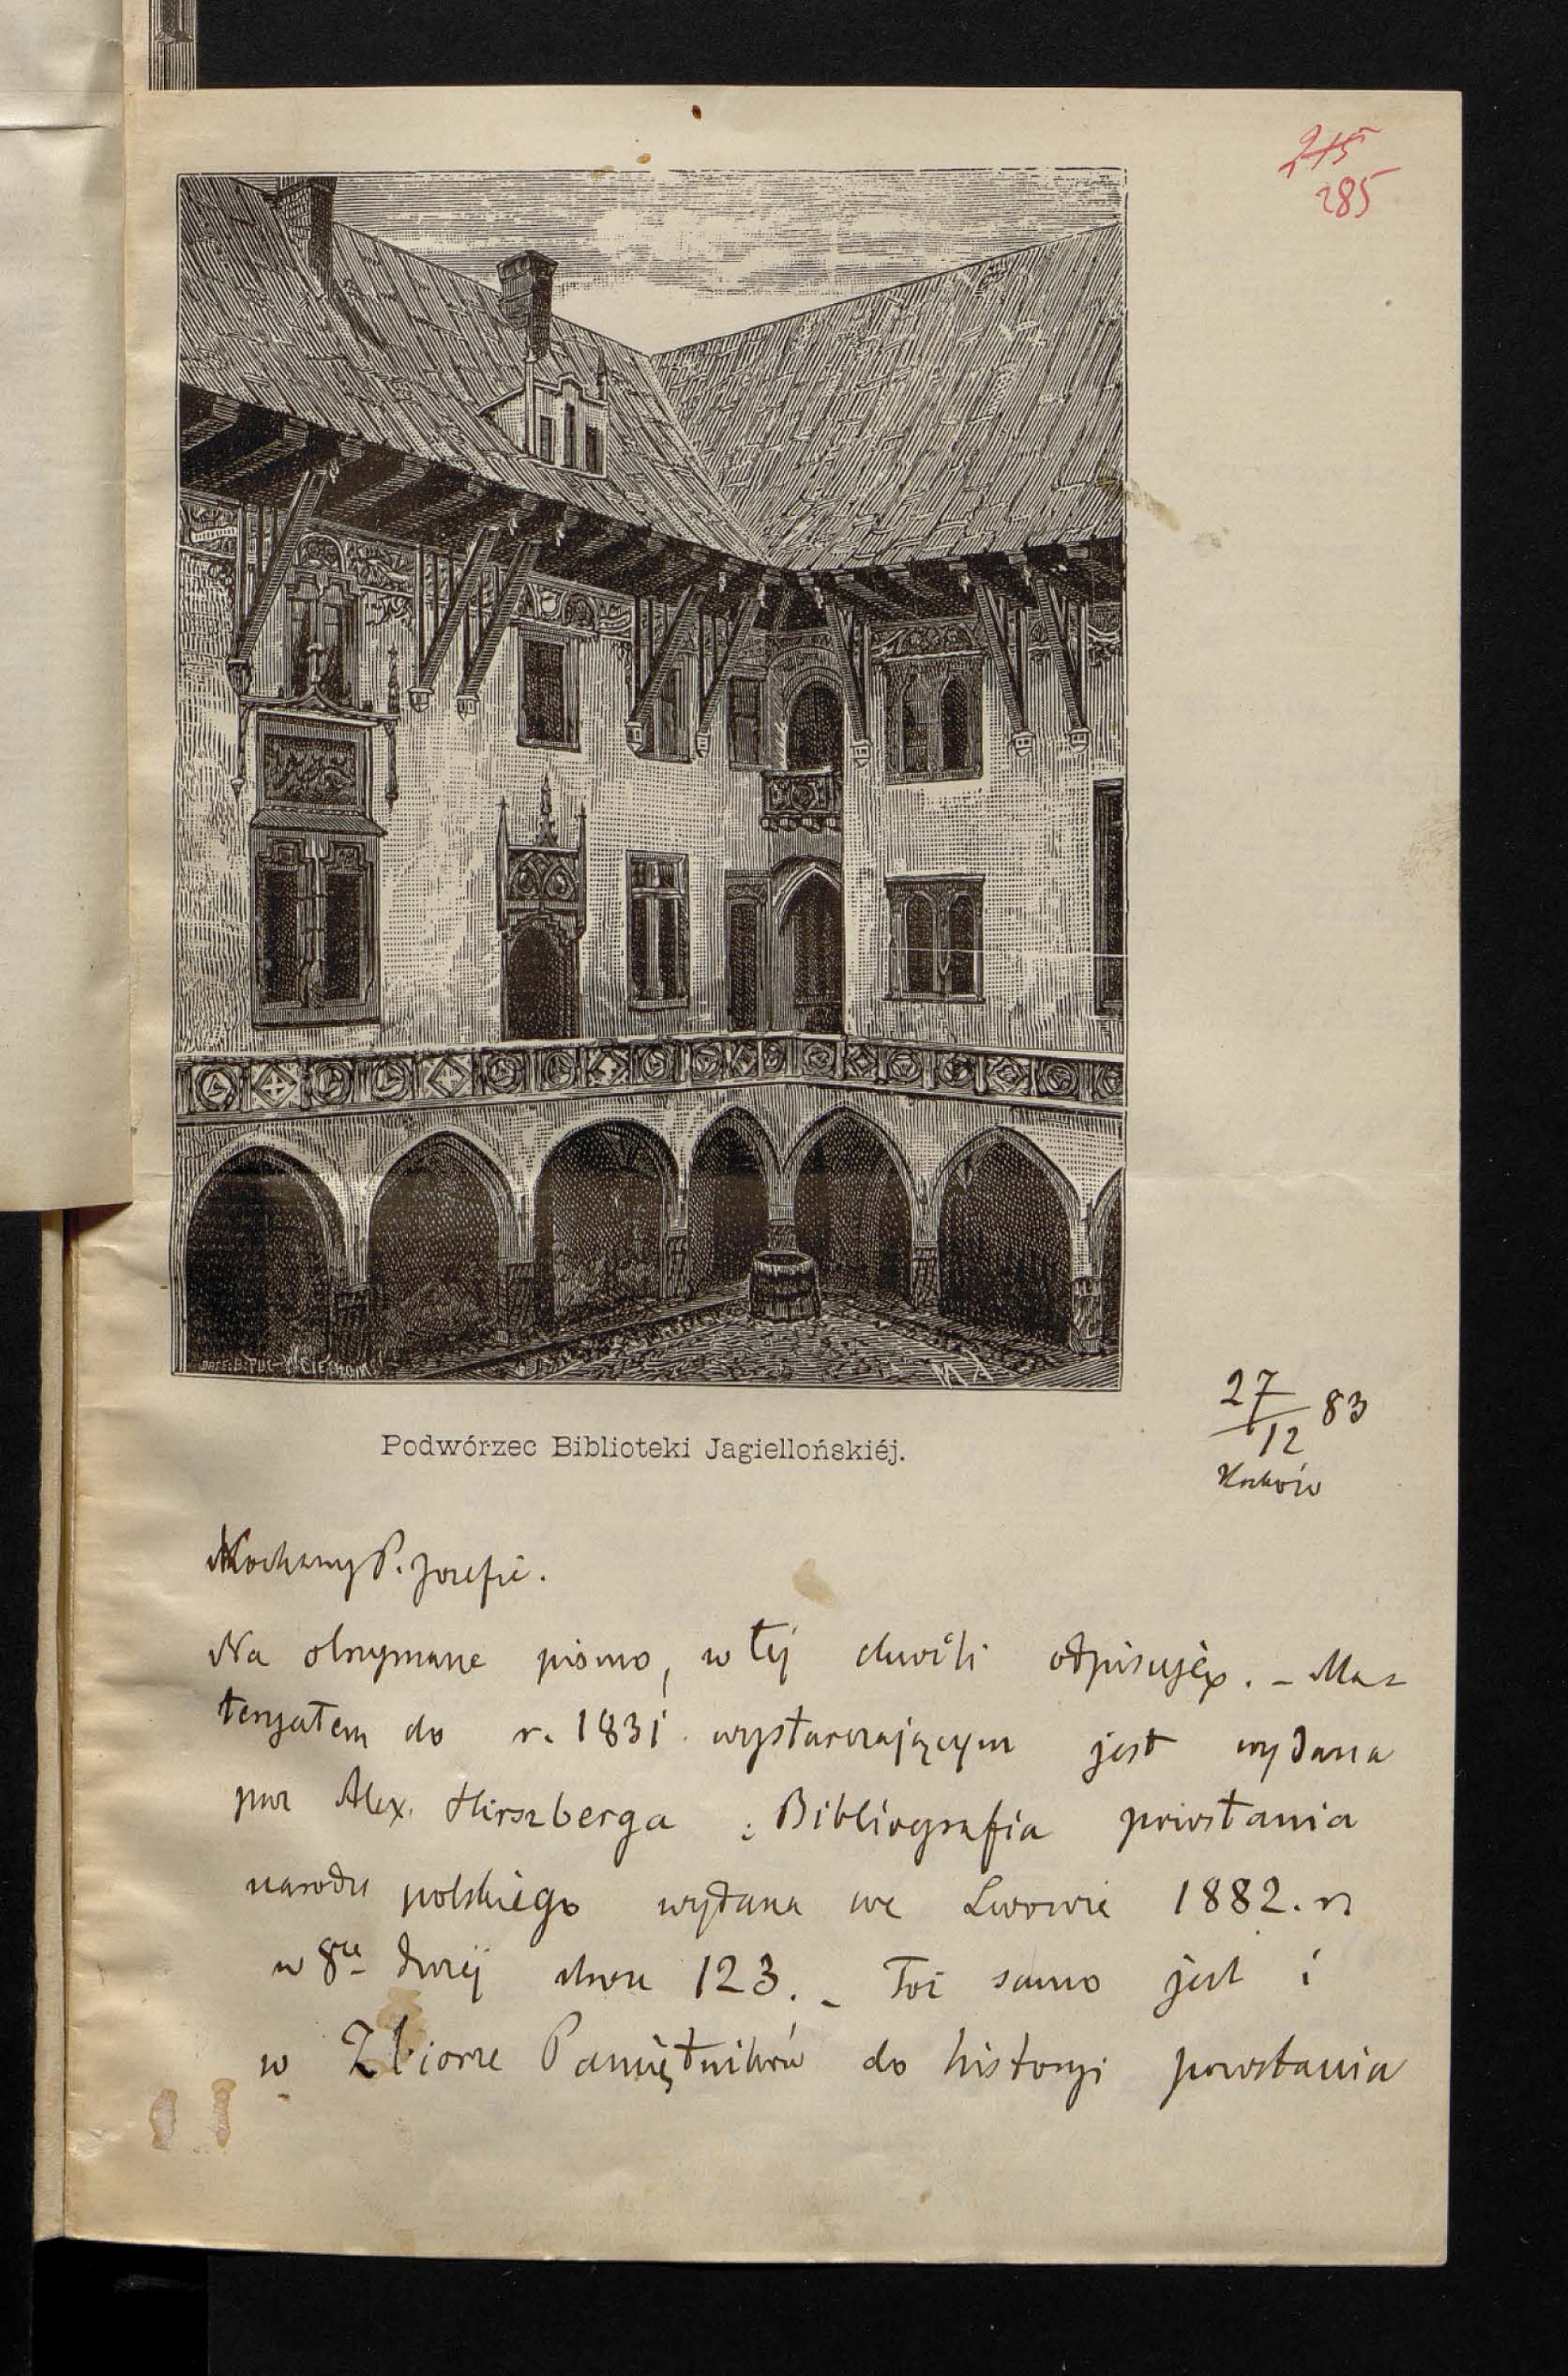 215
285
Podwórzec Biblioteki Jagiellońskiéj.
27/12 83
Kraków
Kochany P. Jozefie.
Na otrzymane pismo, w tej chwili odpisuję. - Ma-
teryałem do r. 1831 wystarczającym jest wydana
prez Alex. Hirszberga : Bibliografia powstania
narodu polskiego wydana we Lwowie 1882. r.
w 8ce dużej stron 123. - Toż samo jest i
w Zbiorze Pamiętników do historyi powstania